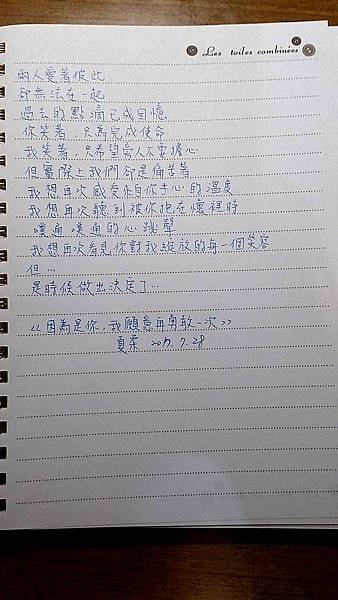 Les toiles combinées
兩人愛著彼此
卻無法在一起
過去的點滴已成回憶
你笑著，只為完成使命
我笑著，只希望旁人不要擔心
但實際上我們卻是痛苦著
我想再次感受來自你手心的溫度
我想再次聽到被你抱在懷裡時
噗通 噗通的心跳聲
我想再次看見你對我綻放的每一個笑容
但...
是時候做出決定了...
<<因為是你，我願意再勇敢一次>>
夏 2017.7.28